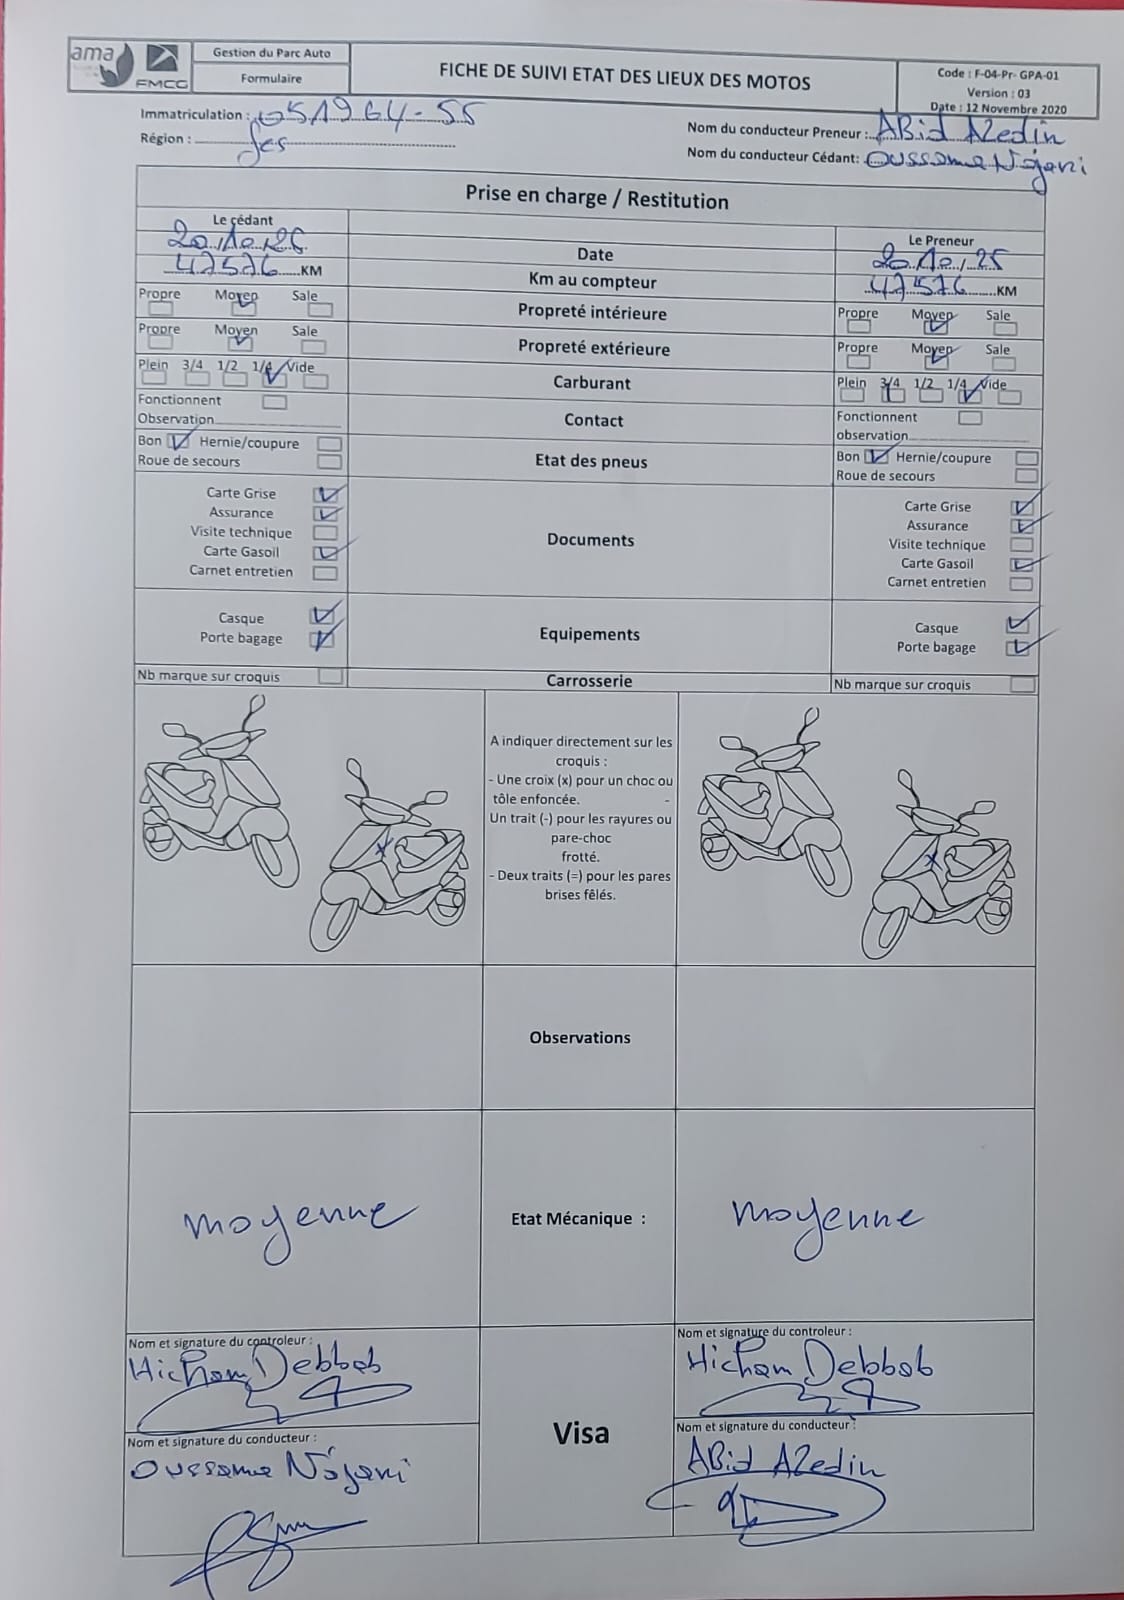 ama
FMCG
Gestion du Parc Auto
Formulaire
FICHE DE SUIVI ETAT DES LIEUX DES MOTOS
Code : F-04-Pr- GPA-01
Version : 03
Date : 12 Novembre 2020
Immatriculation : 051964-55
Région : fes
Nom du conducteur Preneur : ABid AZedin
Nom du conducteur Cédant: Oussama Nojani
Prise en charge / Restitution
Le cédant
Le Preneur
20/10/25 Date 20/10/25
47576 KM Km au compteur 47576 KM
Propre Moyen Sale Propreté intérieure Propre Moyen Sale
Propre Moyen Sale Propreté extérieure Propre Moyen Sale
Plein 3/4 1/2 1/4 Vide Carburant Plein 3/4 1/2 1/4 Vide
Fonctionnent Contact Fonctionnent
Observation observation
Bon Hernie/coupure Etat des pneus Bon Hernie/coupure
Roue de secours Roue de secours
Carte Grise Carte Grise
Assurance Assurance
Visite technique Documents Visite technique
Carte Gasoil Carte Gasoil
Carnet entretien Carnet entretien
Casque Equipements Casque
Porte bagage Porte bagage
Nb marque sur croquis Carrosserie Nb marque sur croquis
A indiquer directement sur les
croquis :
- Une croix (x) pour un choc ou
tôle enfoncée. -
Un trait (-) pour les rayures ou
pare-choc
frotté.
- Deux traits (=) pour les pares
brises fêlés.
x x
Observations
moyenne Etat Mécanique : moyenne
Nom et signature du controleur : Nom et signature du controleur :
Hicham Debbab Hicham Debbab
Visa
Nom et signature du conducteur : Nom et signature du conducteur :
Oussama Nojani ABid AZedin